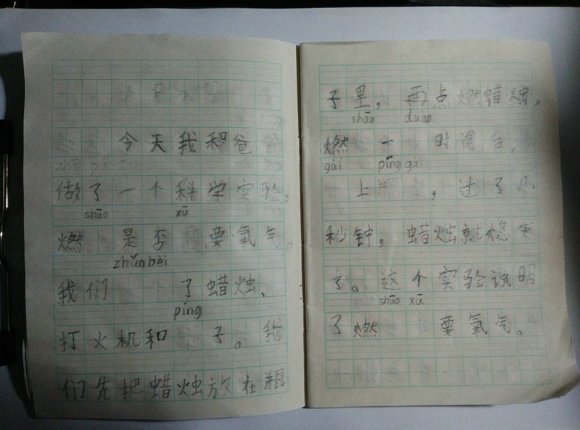 今天我和爸爸
做了一个科学实验,
shāo xū
燃 是否 要氧气。
zhǔn bèi
我们 了蜡烛、
píng
打火机和 子。我
们先把蜡烛放在瓶
子里,再点燃蜡烛,
shāo duan
燃 一 时间后,
gài píng gài
上 ,过了几
秒钟,蜡烛就熄灭
了。这个实验说明
shāo xū
了燃 要氧气。